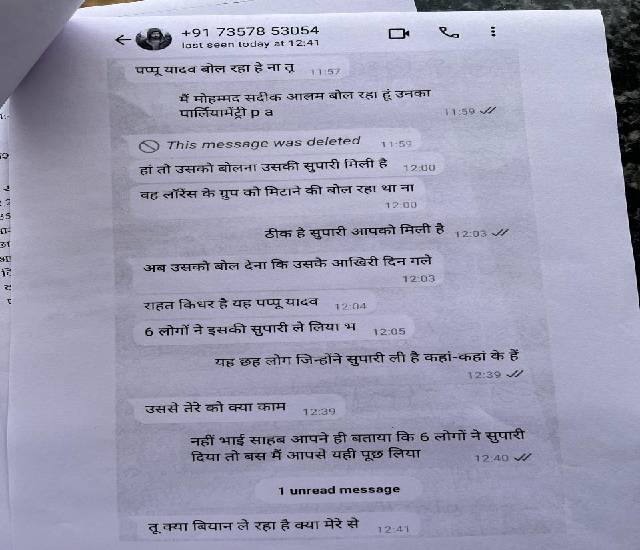 +91 73578 53054
last seen today at 12:41
पप्पू यादव बोल रहा हे ना तू 11:57
मैं मोहम्मद सदीक आलम बोल रहा हूं उनका
पार्लियामेंट्री p a 11:59
This message was deleted 11:59
हां तो उसको बोलना उसकी सुपारी मिली है 12:00
वह लॉरेंस के ग्रुप को मिटाने की बोल रहा था ना
12:00
ठीक है सुपारी आपको मिली है 12:03
अब उसको बोल देना कि उसके आखिरी दिन गले
12:03
राहत किधर है यह पप्पू यादव 12:04
6 लोगों ने इसकी सुपारी ले लिया भ 12:05
यह छह लोग जिन्होंने सुपारी ली है कहां-कहां के हैं
12:39
उससे तेरे को क्या काम 12:39
नहीं भाई साहब आपने ही बताया कि 6 लोगों ने सुपारी
दिया तो बस मैं आपसे यही पूछ लिया 12:40
1 unread message
तू क्या बियान ले रहा है क्या मेरे से 12:41